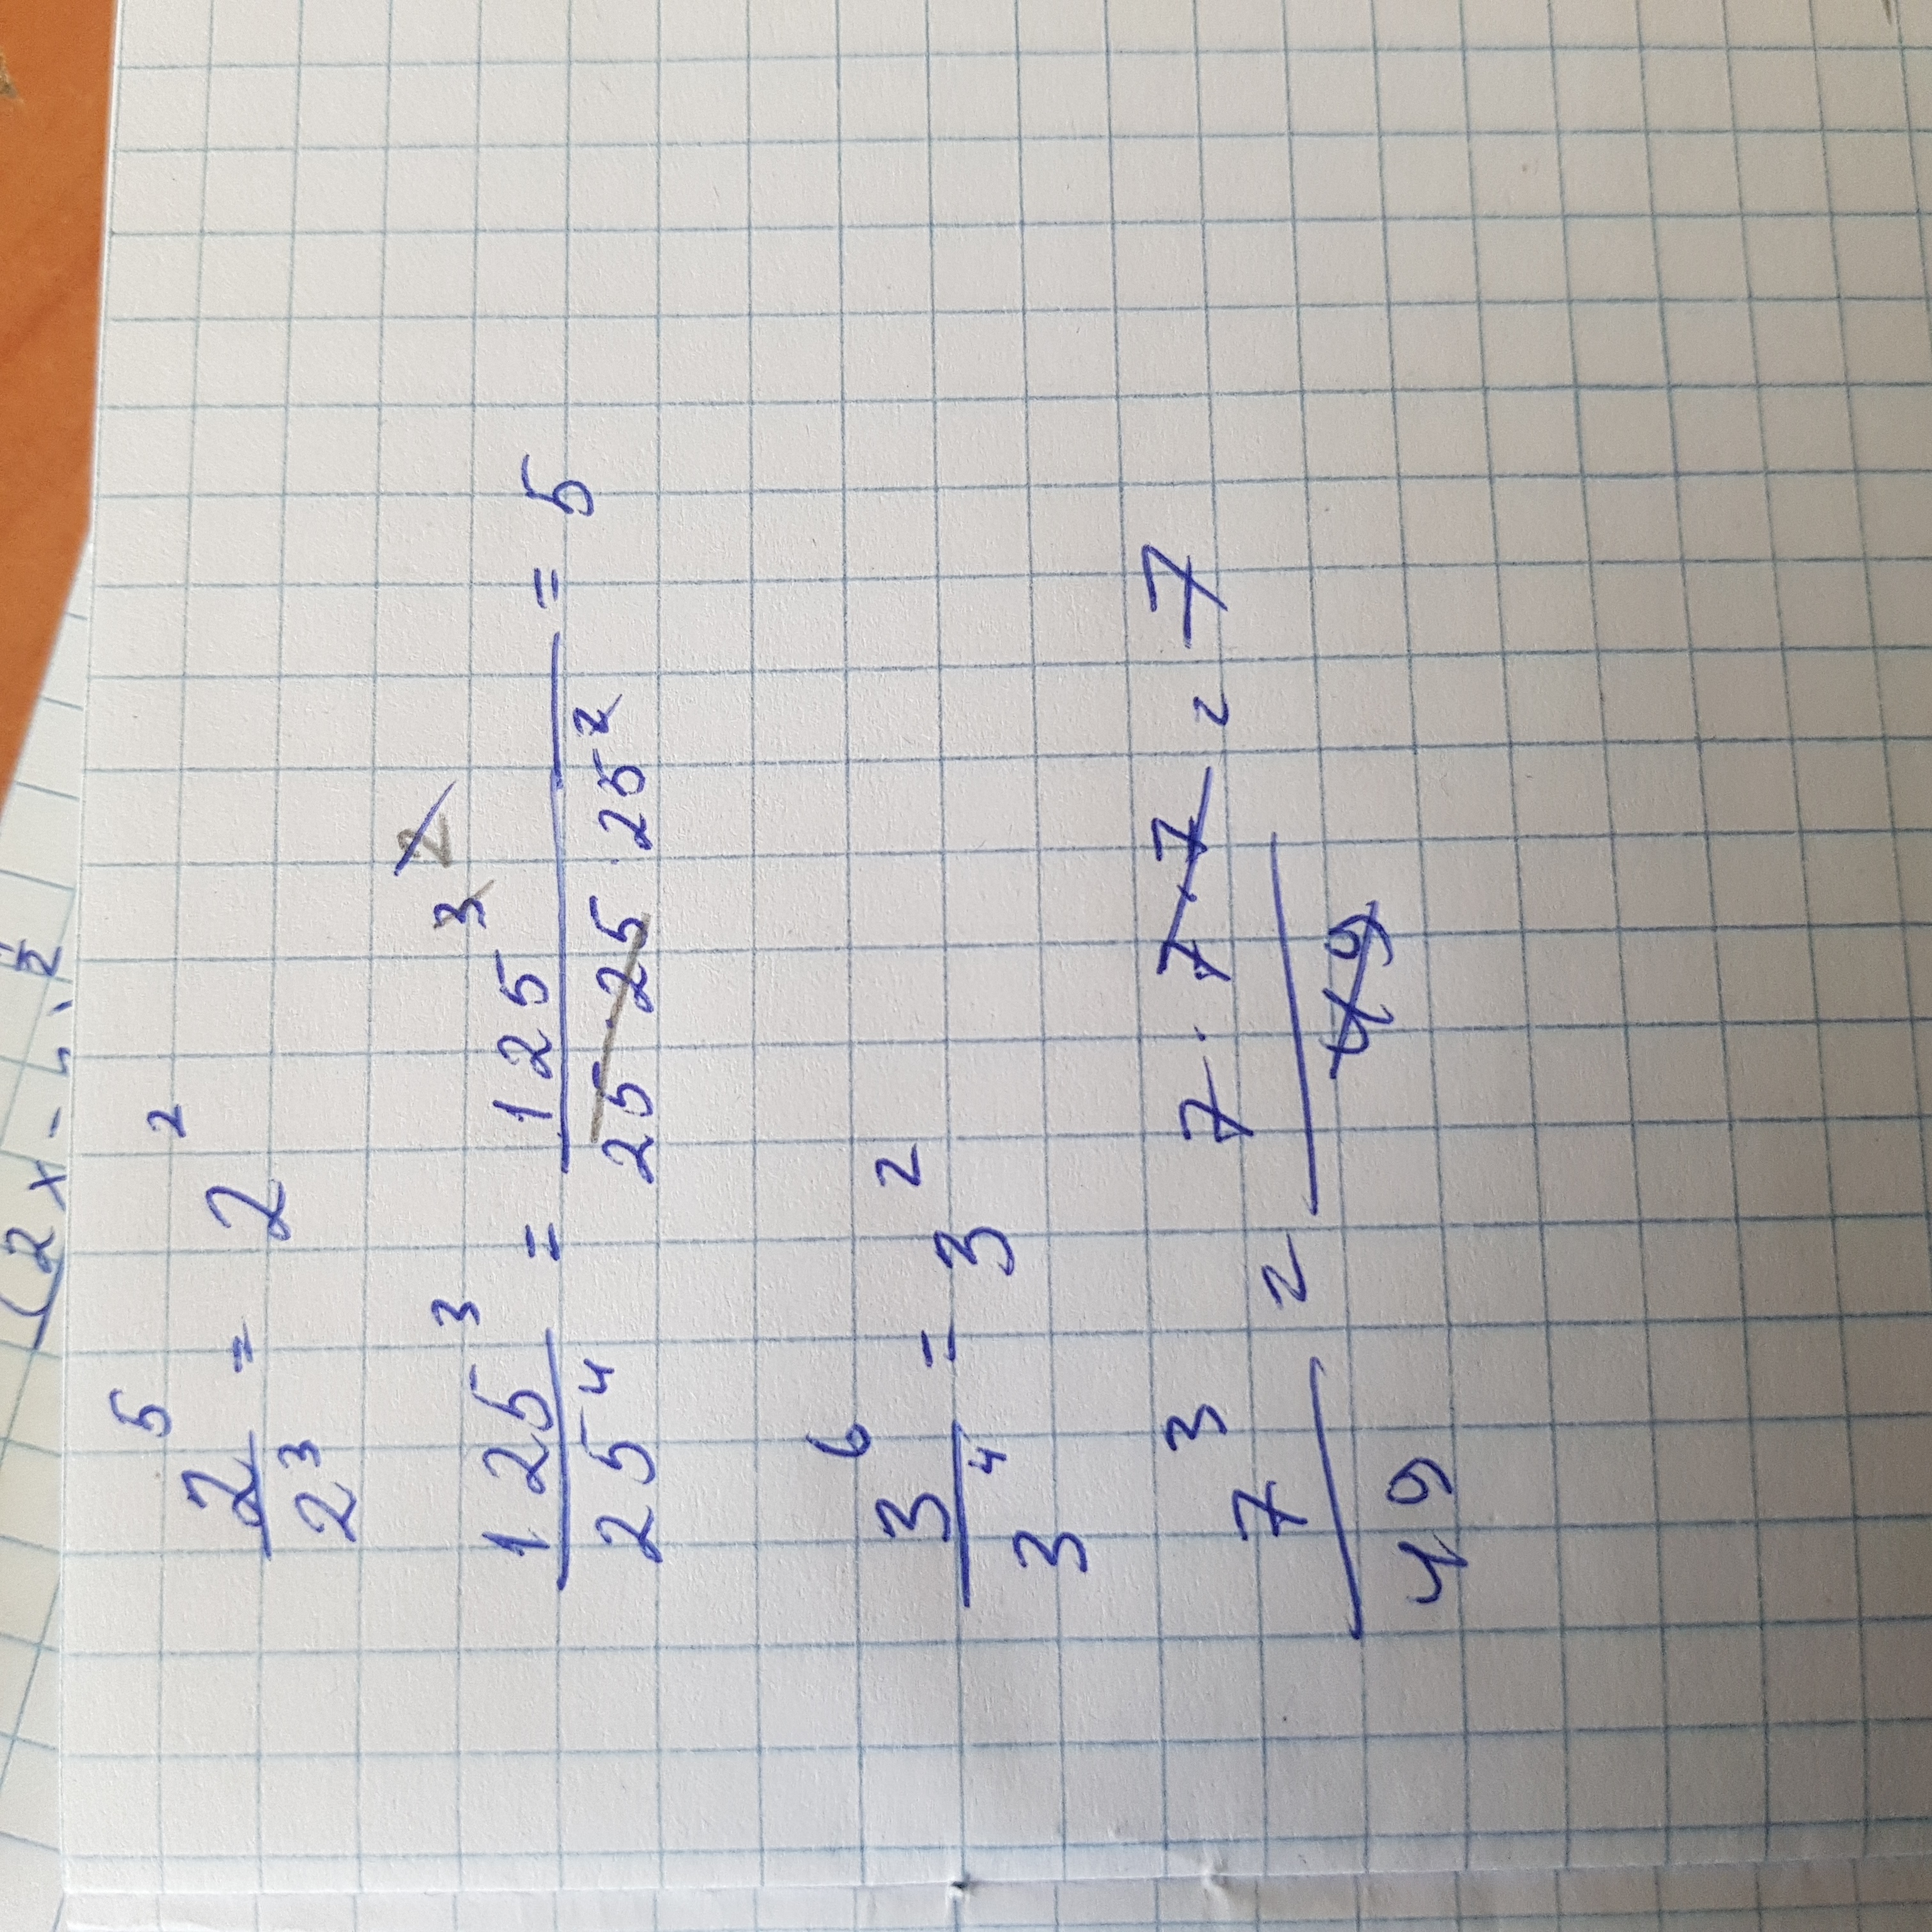 (2x-
2⁵/2³ = 2²
125³/25⁴ = 125³ 2/25·25·25² = 5
3⁶/3⁴ = 3²
7³/49 = 7·7·7/49 = 7